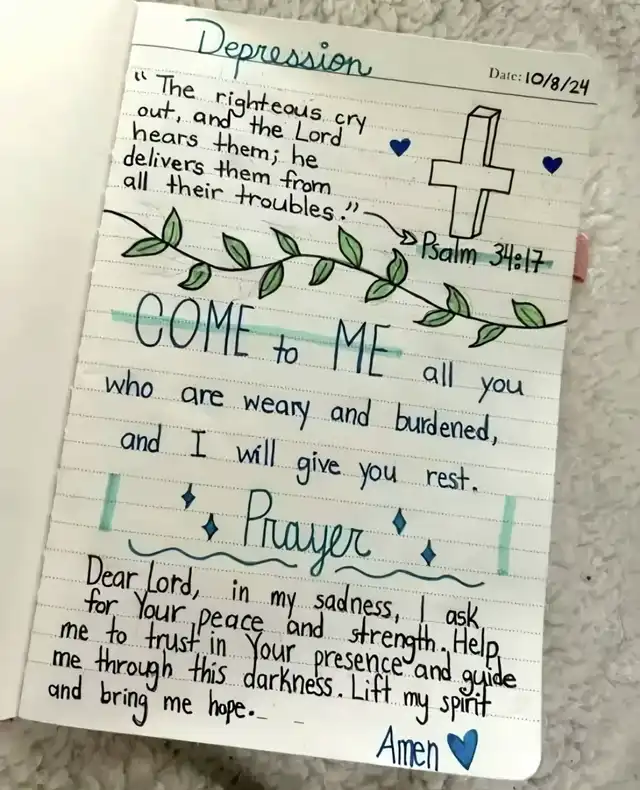 Depression
Date: 10/8/24
“ The righteous cry
out, and the Lord
hears them; he
delivers them from
all their troubles.”
Psalm 34:17
COME to ME all you
who are weary and burdened,
and I will give you rest.
Prayer
Dear Lord, in my sadness, I ask
for Your peace and strength. Help
me to trust in Your presence and guide
me through this darkness. Lift my spirit
and bring me hope.
Amen